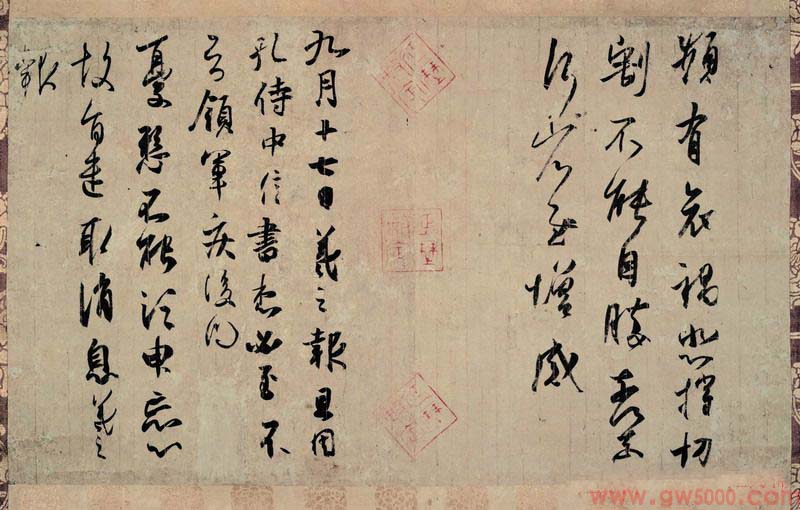 頻有哀禍悲摧切
割不能自勝奈何
奈何省慰增感
九月十七日羲之報且因
孔侍中信書想必至不
知領軍疾後問
憂懸不能須臾忘心
故旨遣取消息羲之
報
www.gw5000.com